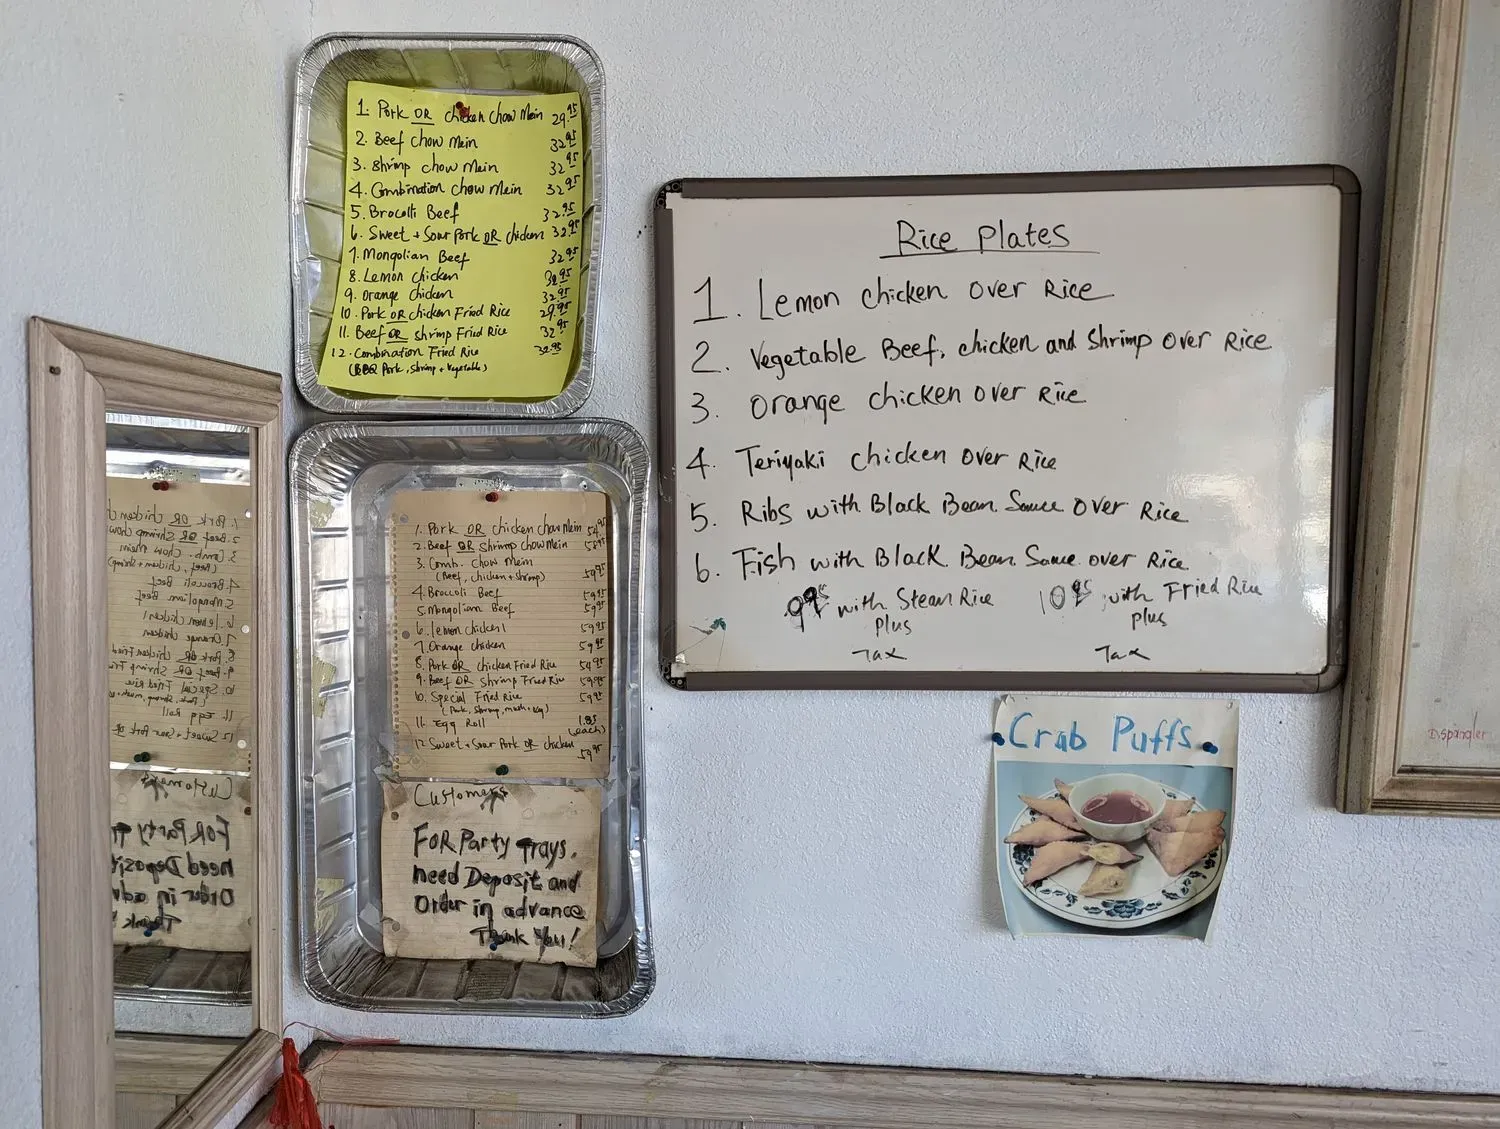 1. Pork OR chicken chow Mein 29.95
2. Beef chow Mein 32.95
3. Shrimp chow Mein 32.95
4. Combination chow Mein 32.95
5. Brocolli Beef 32.95
6. Sweet + Sour Pork OR chicken 32.95
7. Mongolian Beef 32.95
8. Lemon chicken 32.95
9. Orange chicken 32.95
10. Pork OR chicken Fried Rice 29.95
11. Beef OR shrimp Fried Rice 32.95
12. Combination Fried Rice 32.95
(BBQ Pork, Shrimp + Vegetable)
1. Pork OR chicken chow Mein 54.95
2. Beef OR Shrimp Chow Mein 59.95
3. Comb. Chow Mein
(Beef, chicken + shrimp) 59.95
4. Broccoli Beef 59.95
5. Mongolian Beef 59.95
6. lemon chicken 59.95
7. Orange chicken 59.95
8. Pork OR chicken Fried Rice 54.95
9. Beef OR Shrimp Fried Rice 59.95
10. Special Fried Rice 59.95
(Pork, Shrimp, mush + veg)
11. Egg Roll 1.85
(each)
12. Sweet + Sour Pork OR chicken
59.95
Customers
FOR Party Trays,
need Deposit and
Order in advance
Thank You!
Rice Plates
1. Lemon chicken over Rice
2. Vegetable Beef, chicken and Shrimp over Rice
3. Orange chicken over Rice
4. Teriyaki chicken over Rice
5. Ribs with Black Bean Sauce over Rice
6. Fish with Black Bean Sauce over Rice
9.95 with Steam Rice 10.95 with Fried Rice
plus plus
Tax Tax
Crab Puffs
D. Spangler